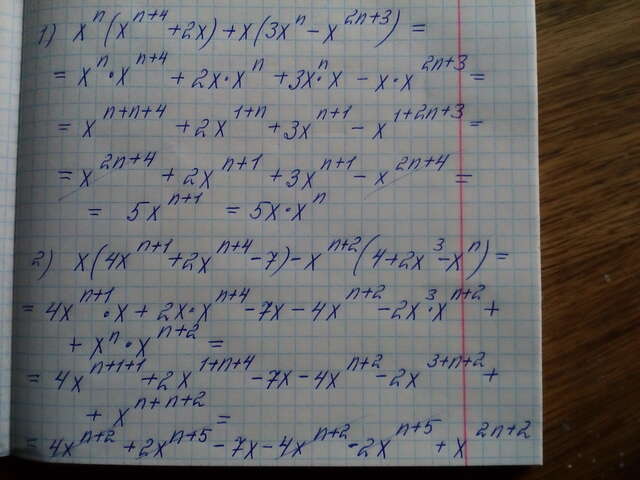 1) xⁿ(xⁿ⁺⁴ + 2x) + x(3xⁿ - x²ⁿ⁺³) =
= xⁿ·xⁿ⁺⁴ + 2x·xⁿ + 3xⁿ·x - x·x²ⁿ⁺³ =
= xⁿ⁺ⁿ⁺⁴ + 2x¹⁺ⁿ + 3xⁿ⁺¹ - x¹⁺²ⁿ⁺³ =
= x²ⁿ⁺⁴ + 2xⁿ⁺¹ + 3xⁿ⁺¹ - x²ⁿ⁺⁴ =
= 5xⁿ⁺¹ = 5x·xⁿ
2) x(4xⁿ⁺¹ + 2xⁿ⁺⁴ - 7) - xⁿ⁺²(4 + 2x³ - xⁿ) =
= 4xⁿ⁺¹·x + 2x·xⁿ⁺⁴ - 7x - 4xⁿ⁺² - 2x³·xⁿ⁺² +
+ xⁿ·xⁿ⁺² =
= 4xⁿ⁺¹⁺¹ + 2x¹⁺ⁿ⁺⁴ - 7x - 4xⁿ⁺² - 2x³⁺ⁿ⁺² +
+ xⁿ⁺ⁿ⁺² =
= 4xⁿ⁺² + 2xⁿ⁺⁵ - 7x - 4xⁿ⁺² - 2xⁿ⁺⁵ + x²ⁿ⁺²